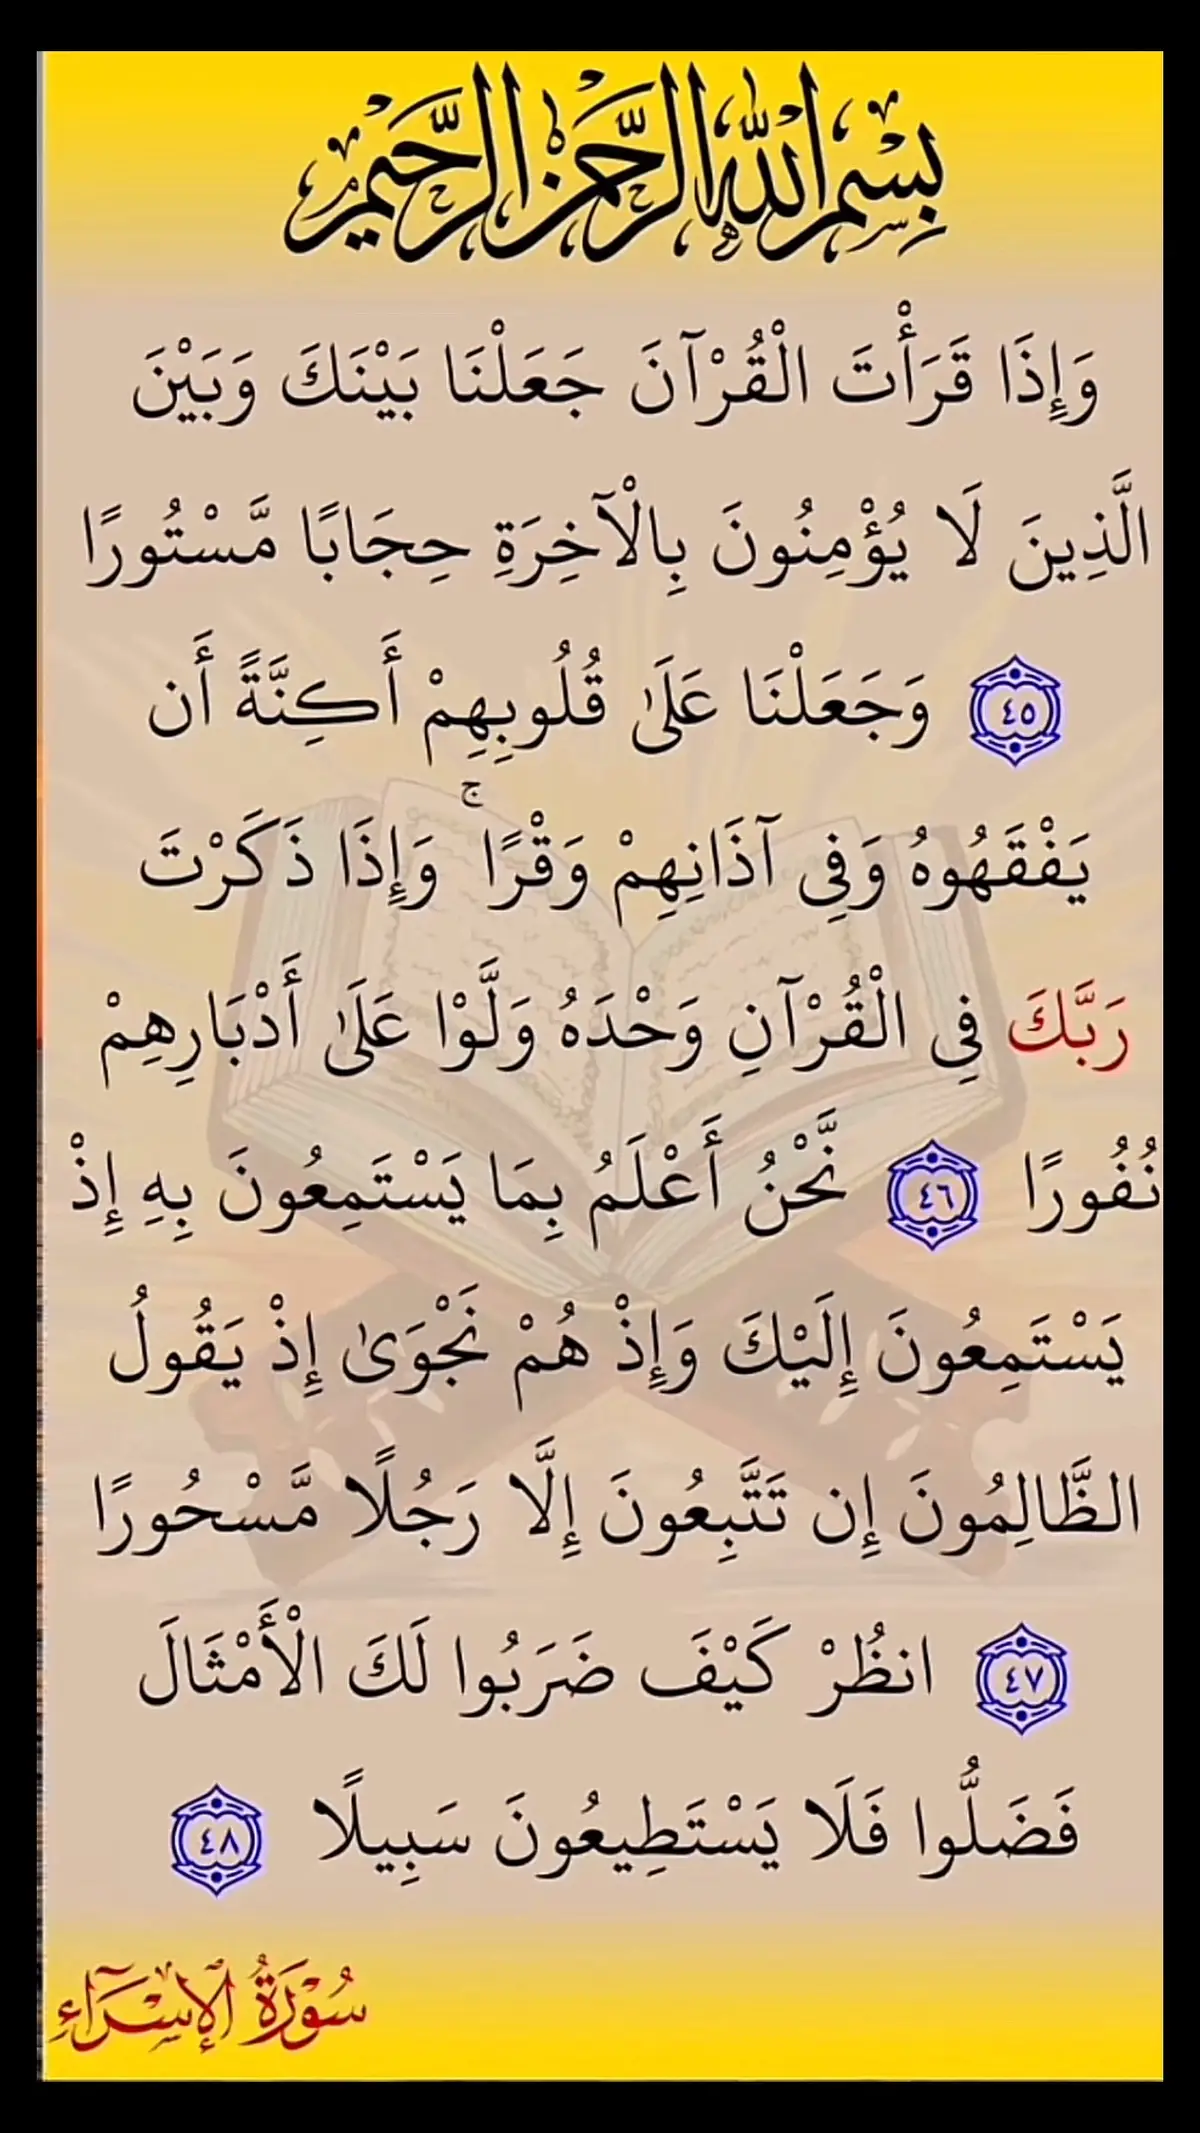 بِسْمِ اللَّهِ الرَّحْمَٰنِ الرَّحِيمِ
وَإِذَا قَرَأْتَ الْقُرْآنَ جَعَلْنَا بَيْنَكَ وَبَيْنَ
الَّذِينَ لَا يُؤْمِنُونَ بِالْآخِرَةِ حِجَابًا مَّسْتُورًا
٤٥ وَجَعَلْنَا عَلَىٰ قُلُوبِهِمْ أَكِنَّةً أَن
يَفْقَهُوهُ وَفِي آذَانِهِمْ وَقْرًا ۚ وَإِذَا ذَكَرْتَ
رَبَّكَ فِي الْقُرْآنِ وَحْدَهُ وَلَّوْا عَلَىٰ أَدْبَارِهِمْ
نُفُورًا ٤٦ نَّحْنُ أَعْلَمُ بِمَا يَسْتَمِعُونَ بِهِ إِذْ
يَسْتَمِعُونَ إِلَيْكَ وَإِذْ هُمْ نَجْوَىٰ إِذْ يَقُولُ
الظَّالِمُونَ إِن تَتَّبِعُونَ إِلَّا رَجُلًا مَّسْحُورًا
٤٧ انظُرْ كَيْفَ ضَرَبُوا لَكَ الْأَمْثَالَ
فَضَلُّوا فَلَا يَسْتَطِيعُونَ سَبِيلًا ٤٨
سُورَةُ الإِسْرَاءِ